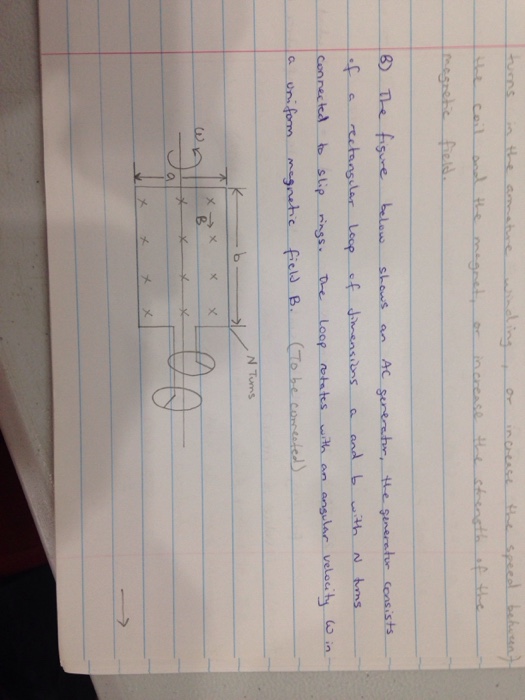 turns in the armature winding, or increase the speed between
the coil and the magnet, or increase the strength of the
magnetic field.
B) The figure below shows an AC generator, the generator consists
of a rectangular loop of dimensions a and b with N turns
connected to slip rings. The loop rotates with an angular velocity ω in
a uniform magnetic field B. (To be connected)
N Turns
b
ω
a
x x x
B
x x x x
x x x x